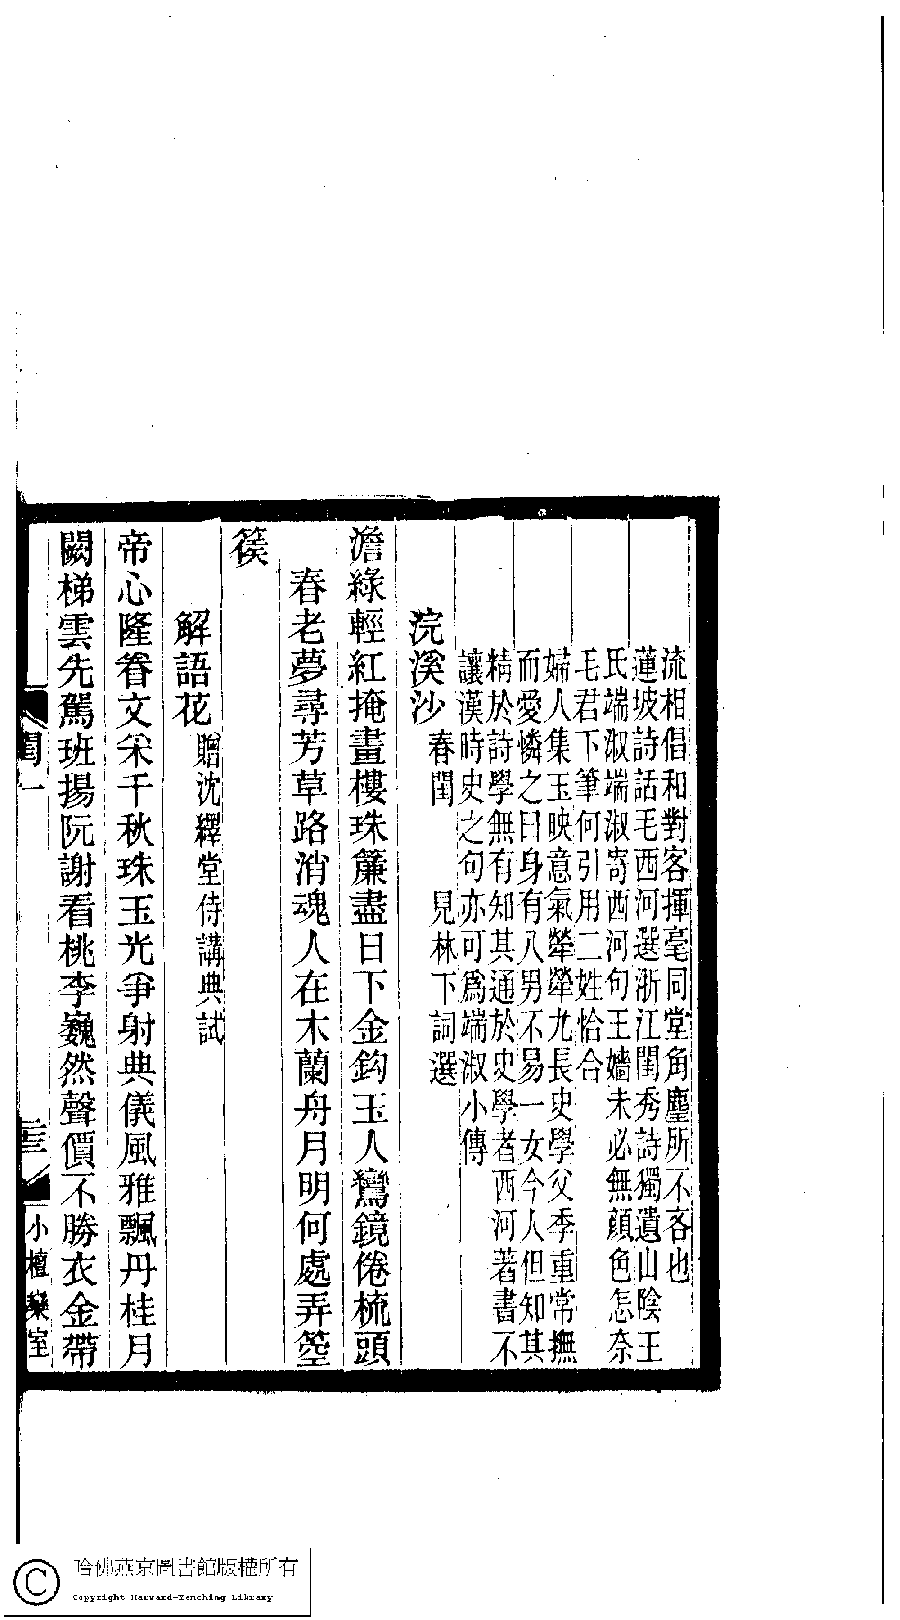 流相倡和對客揮毫同堂角麈所不吝也
蓮坡詩話毛西河選浙江閨秀詩獨遺山陰王
氏端淑端淑寄西河句王嬙未必無顔色怎奈
毛君下筆何引用二姓恰合
婦人集玉映意氣犖犖尤長史學父季重常撫
而愛憐之曰身有八男不易一女今人但知其
精於詩學無有知其通於史學者西河著書不
讓漢時史之句亦可爲端淑小傳
浣溪沙 春閨 見林下詞選
澹綠輕紅掩畫樓珠簾盡日下金鈎玉人鸞鏡倦梳頭
春老夢尋芳草路消魂人在木蘭舟月明何處弄箜
篌
解語花 贈沈繹堂侍講典試
帝心隆眷文采千秋珠玉光爭射典儀風雅飄丹桂月
闕梯雲先駕班揚阮謝看桃李巍然聲價不勝衣金帶
閨一
小檀欒室
哈佛燕京圖書館版權所有
Copyright Harvard-Yenching Library